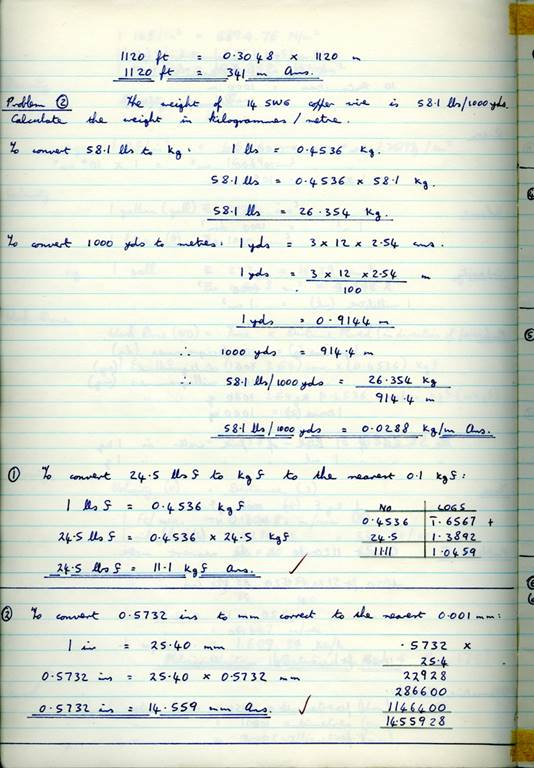 1120 ft = 0.3048 × 1120 m
1120 ft = 341 m Ans.
Problem ② The weight of 14 SWG copper wire is 58.1 lbs/1000 yds.
Calculate the weight in kilogrammes/metre.
To convert 58.1 lbs to kg: 1 lbs = 0.4536 Kg.
58.1 lbs = 0.4536 × 58.1 Kg.
58.1 lbs = 26.354 Kg.
To convert 1000 yds to metres: 1 yds = 3 × 12 × 2.54 cms.
1 yds = 3 × 12 × 2.54 m
100
1 yds = 0.9144 m
∴ 1000 yds = 914.4 m
∴ 58.1 lbs/1000 yds = 26.354 Kg
914.4 m
58.1 lbs/1000 yds = 0.0288 Kg/m Ans.
① To convert 24.5 lbs f to kg f to the nearest 0.1 kg f:
1 lbs f = 0.4536 kg f
24.5 lbs f = 0.4536 × 24.5 kg f
24.5 lbs f = 11.1 kg f Ans. ✓
No LOGS
0.4536 1̄.6567 +
24.5 1.3892
11.11 1.0459
② To convert 0.5732 ins to mm correct to the nearest 0.001 mm:
1 in = 25.40 mm
0.5732 ins = 25.40 × 0.5732 mm
0.5732 ins = 14.559 mm Ans. ✓
.5732 ×
25.4
22928
286600
1146400
1455928